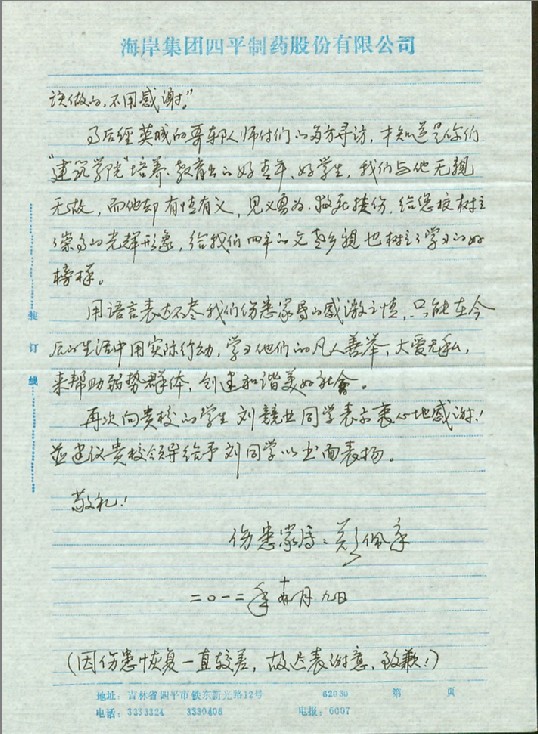 海岸集团四平制药股份有限公司
该做的,不用感谢。"
事后经英城的哥车队师付们的多方寻访,才知道是你们
"建筑学院"培养、教育出的好青年、好学生,我们与他无亲
无故,而他却有情有义,见义勇为、救死扶伤,给您校树立
崇高的光辉形象,给我们四平的父老乡亲也树立了学习的好
榜样。
用语言表达不尽我们伤患家属的感激之情,只能在今
后的生活中用实际行动,学习他们的凡人善举,大爱无私,
来帮助弱势群体,创建和谐美好社会。
再次向贵校的学生刘競业同学表示衷心地感谢!
并建议贵校领导给予刘同学以书面表扬。
敬礼!
伤患家属:彭佩
二〇一二年 月九日
(因伤患恢复一直较差,故迟表谢意,致歉!)
装订线
地址:吉林省四平市铁东新光路12号 第 页
电话:3233224 3239408 电报:6007